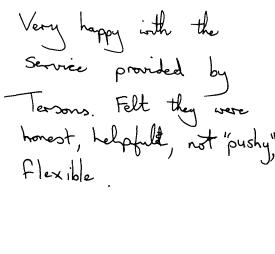 Very happy with the
service provided by
Tersons. Felt they were
honest, helpful, not "pushy",
flexible.